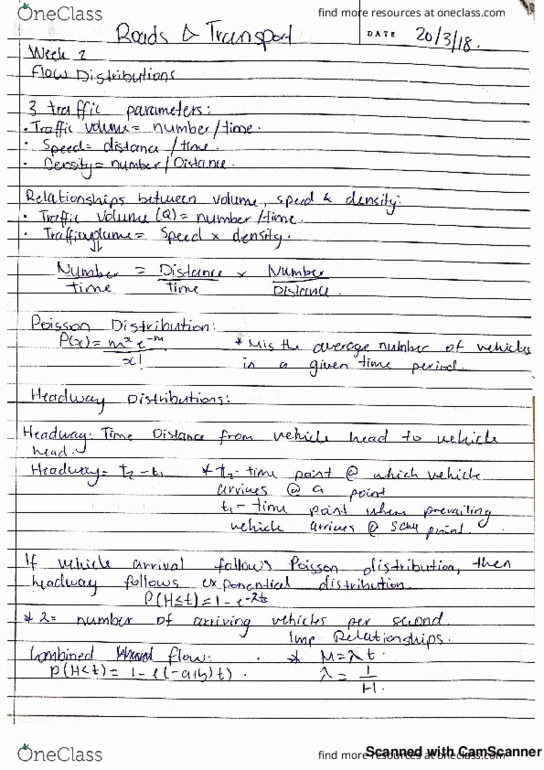 OneClass
find more resources at oneclass.com
Roads & Transport
DATE 20/3/18.
Week 2
Flow Distributions
3 traffic parameters:
• Traffic volume = number/time.
• Speed = distance/time.
• Density = number/Distance.
Relationships between volume, speed & density:
• Traffic volume (Q) = number/time.
• Traffic volume = Speed x density.
Number = Distance x Number
time Time Distance.
Poisson Distribution:
P(x) = m^x e^-m
x!
* M is the average number of vehicles
in a given time period.
Headway Distributions:
Headway: Time Distance from vehicle head to vehicle
head.
Headway = t2 - t1
* t2 - time point @ which vehicle
arrives @ a point
t1 - time point when prevailing
vehicle arrives @ same point.
If vehicle arrival follows Poisson distribution, then
headway follows exponential distribution.
P(H≤t) = 1 - e^-λt
* λ = number of arriving vehicles per second.
Imp Relationships.
Combined flow:
* M = λt.
P(H≤t) = 1 - e(-a+b)t).
λ = 1
H.
OneClass
find more resources at oneclass.com
Scanned with CamScanner